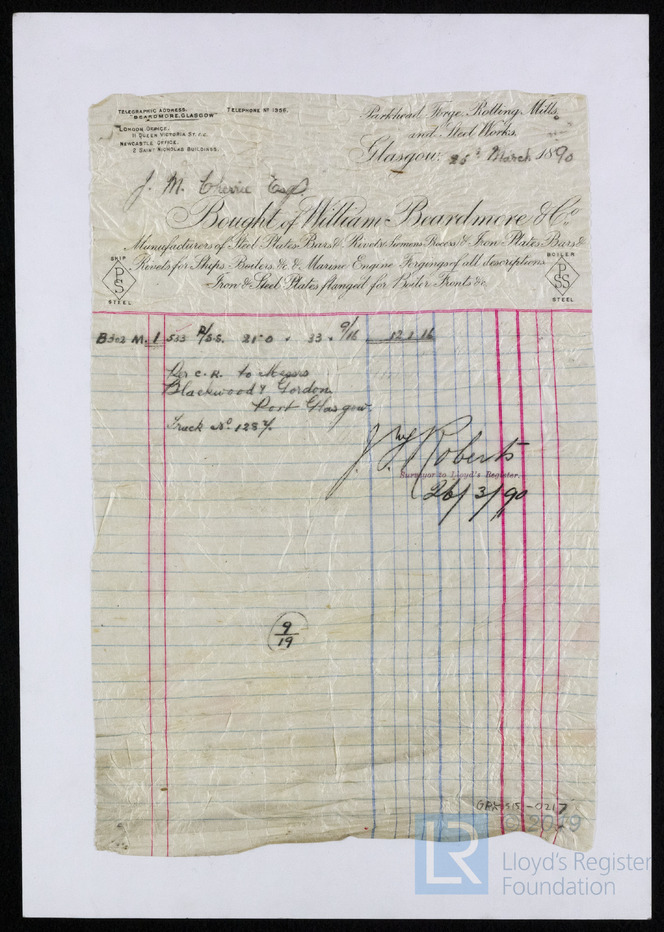 TELEGRAPHIC ADDRESS, TELEPHONE No 1356.
"BEARDMORE, GLASGOW"
LONDON OFFICE,
11 QUEEN VICTORIA ST. E.C.
NEWCASTLE OFFICE,
2 SAINT NICHOLAS BUILDINGS.
Parkhead Forge, Rolling Mills,
and Steel Works,
Glasgow, 25th March 1890
J. M. Cherrie Esq.
Bought of William Beardmore & Co.
Manufacturers of Steel Plates Bars & Rivets Siemens Process & Iron Plates Bars &
Rivets for Ships Boilers &c & Marine Engine Forgings of all descriptions
Iron & Steel Plates flanged for Boiler Fronts &c.
SHIP
PSS
STEEL
BOILER
PSS
STEEL
B302 M. 1 533 P/SS. 21.0 . 33 . 9/16 12.1.16
Per C.R. to Messrs
Blackwood & Gordon
Port Glasgow.
Truck No 1287.
J. Roberts
Surveyor to Lloyd's Register.
26/3/90
9
19
-0217
© 2019
LR
Lloyd's Register
Foundation